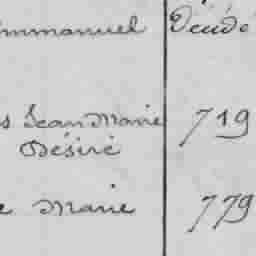 mmanuel Décédé
s Jean Marie 719
Désiré
e Marie 779